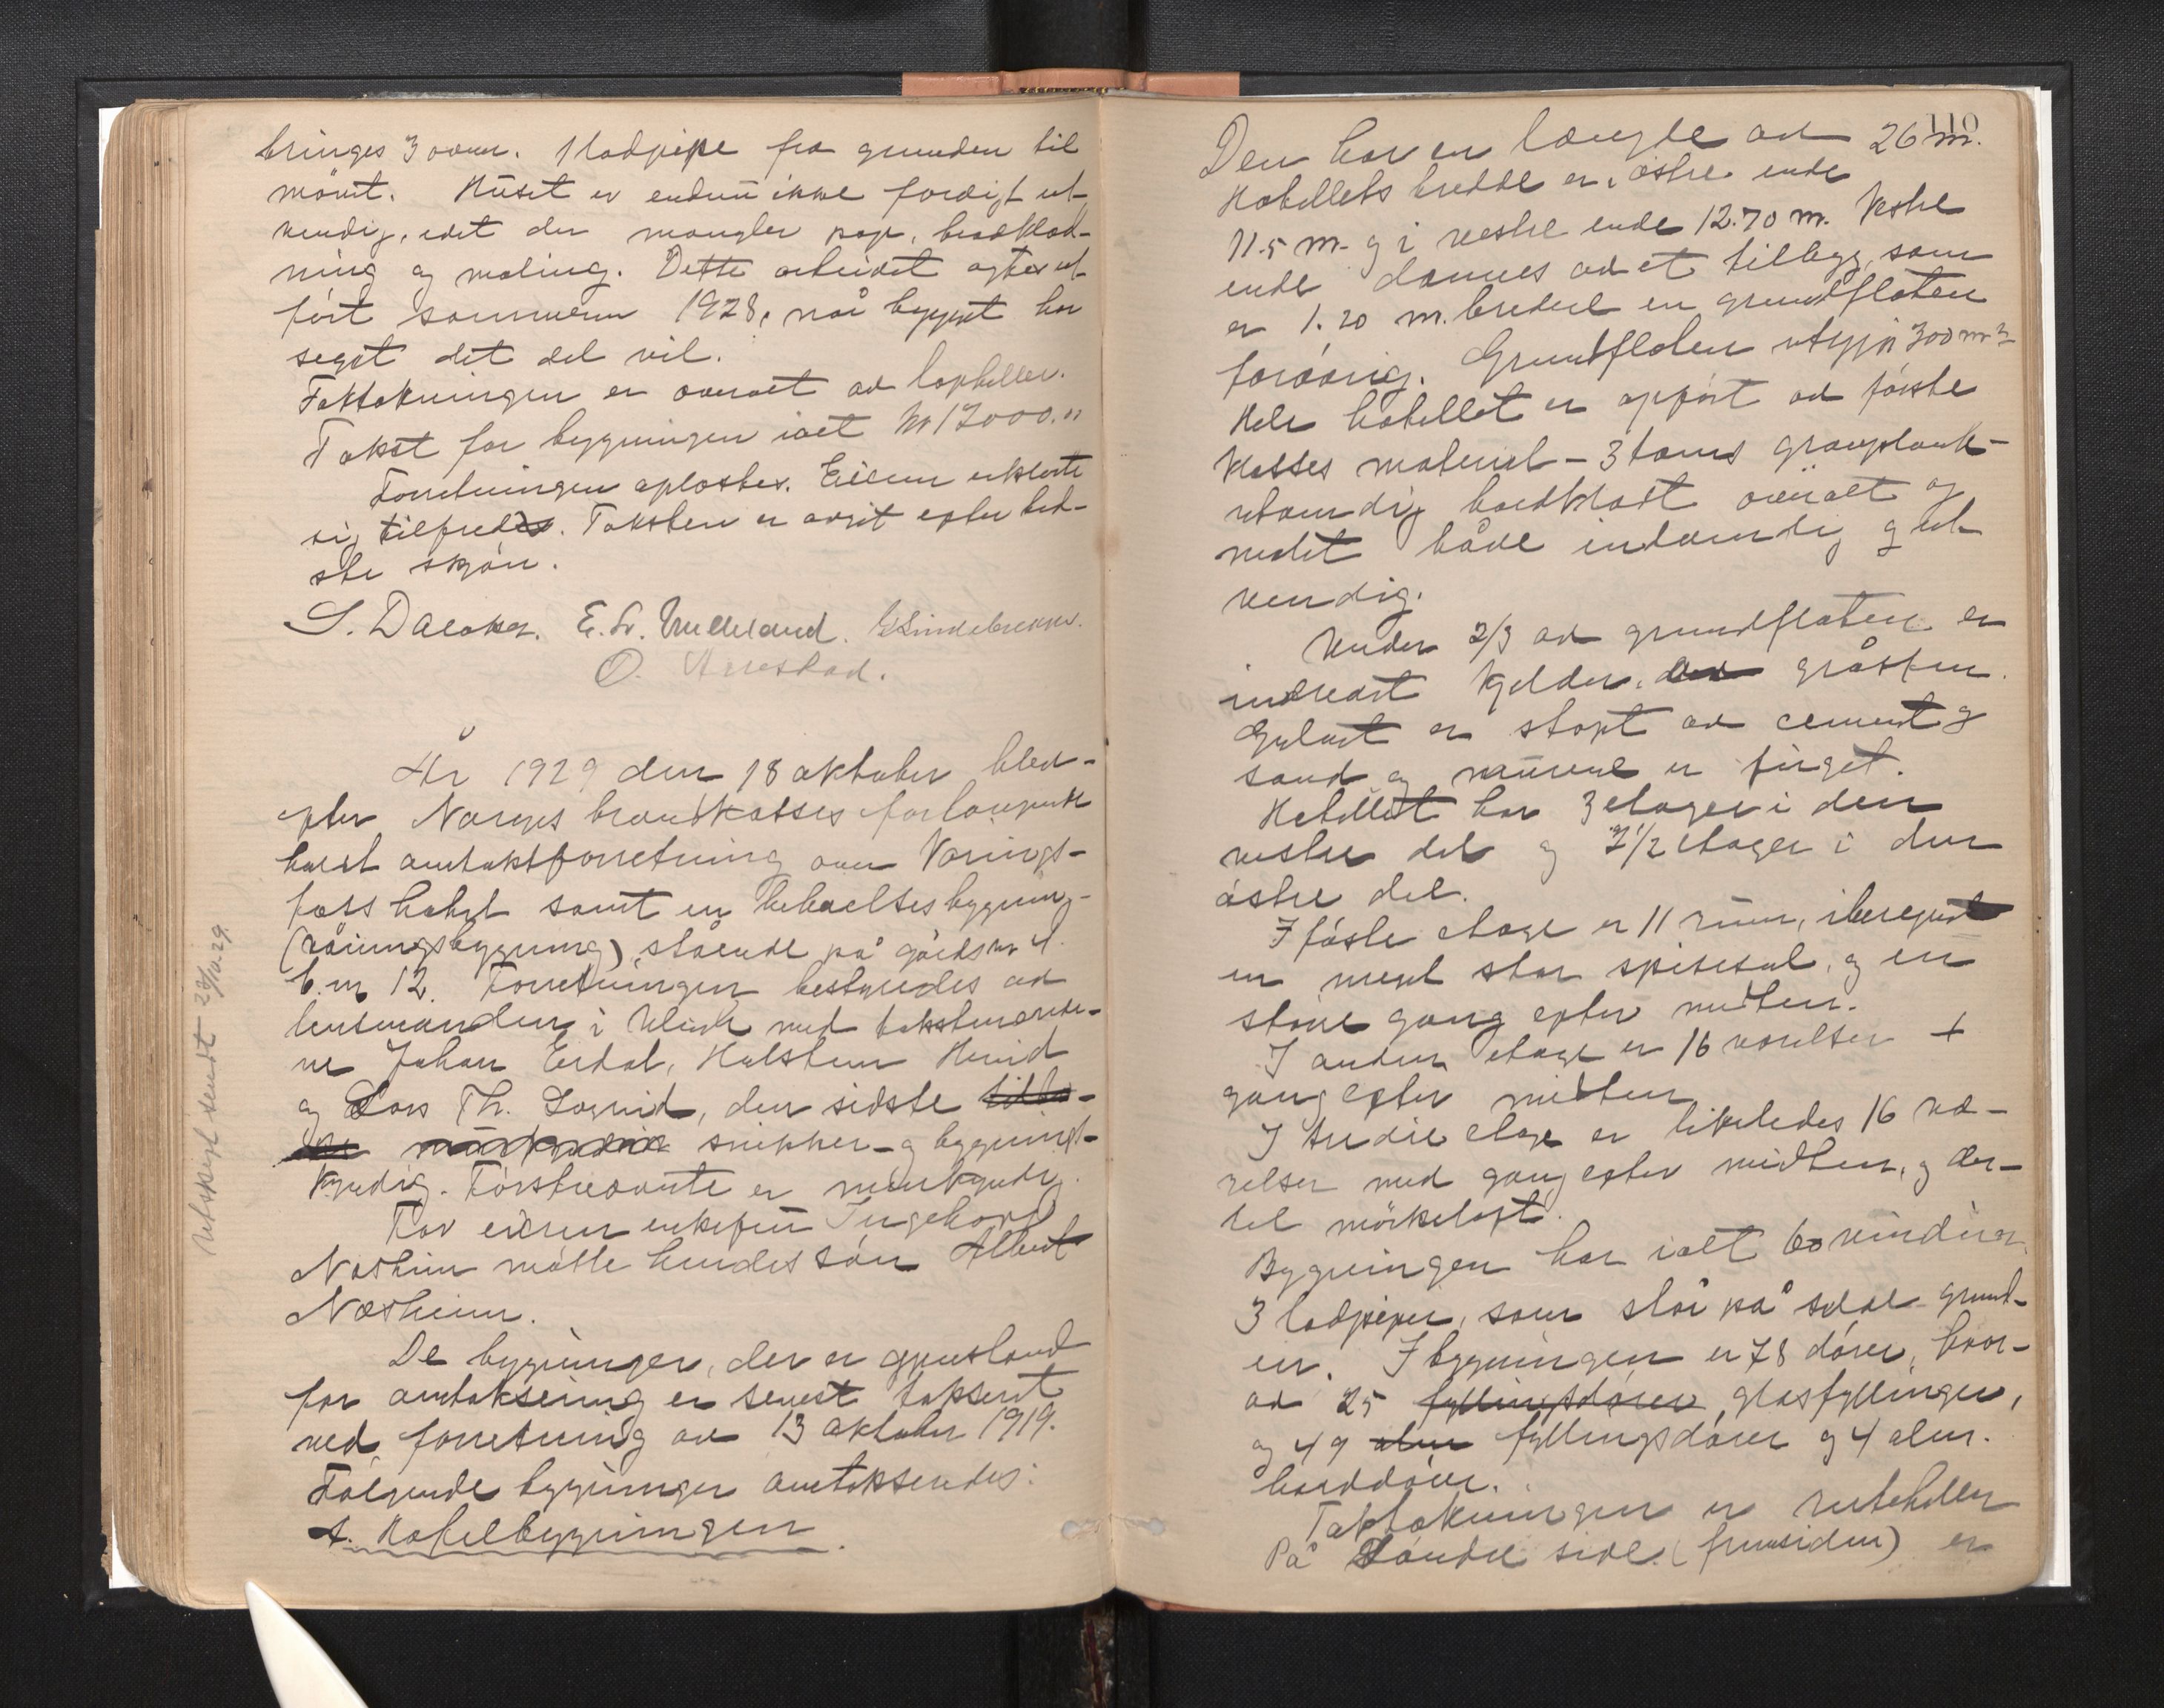 bringes 3 ovner. 1 ladpipe fra grunden til
mönet. Huset er endnu ikke færdigt ut-
vendig, idet der mangler pap, bordklæd-
ning og maling. Dette arbeidet agtes ut-
fört sommeren 1928, når bygget har
seget det det vil.
Taktækningen er overalt av lapheller.
Takst for bygningen ialt kr 17000.-
Forretningen oplæstes. Eieren erklærte
sig tilfreds. Taksten er avgit efter bed-
ste skjön.
S. Dalaker. E. L. Underland. E Lindebrekke.
O. Aarestad.
År 1929 den 18 oktober blev
efter Norges brandkasses forlangende
holdt omtakstforretning over Vörings-
foss hotel samt en beboelsesbygning
(våningsbygning) stående på gårds nr
b.nr 12. Forretningen bestyredes av
lensmanden i Ulvik med takstmænde-
ne Johan Erdal, Halsten Hereid
og Lars Th. Legreid, den sidste
snikker- og bygnings-
kyndig. Förstnævnte er murkyndig.
For eieren enkefru Ingeborg
Næsheim mötte hendes sön Albert
Næsheim.
De bygninger, der er gjenstand
for omtaksering er senest taksert
ved forretning av 13 oktober 1919.
Fölgende bygninger omtakseredes:
A. Hotelbygningen.
Utskrift sendt 23/10.29.
110
Den har en længde av 26 m.
Hotellets bredde er i östre ende
11.5 m. og i vestre ende 12.70 m. Vestre
ende dannes av et tilbygg, som
er 1.20 m. bredere en grundflaten
forövrig. Grundflaten utgjör 300 m2
Hele hotellet er opfört av förste
klasses material - 3 toms granplank -
utvendig bordklædt overalt og
malet både indvendig og ut-
vendig.
Under 2/3 av grundflaten er
indredet kjelder, av gråsten.
Gulvet er stöpt av cement og
sand og murene er fuget.
Hotellet har 3 etager i den
vestre del og 2 1/2 etager i den
östre del.
I förste etage er 11 rum, iberegnet
en meget stor spisesal, og en
större gang efter midten.
I anden etage er 16 værelser +
gang efter midten
I tredie etage er likeledes 16 væ-
relser med gang efter midten, og der-
til mörkeloft.
Bygningen har ialt 60 vinduer.
3 ladpiper, som står på selve grund-
en. I bygningen er 78 dörer, hvor-
av 25 fyllingsdörer glasfyllinger,
og 49 alm fyllingsdörer og 4 alm.
borddörer.
Taktækningen er ruteheller
På söndre side (fremsiden) er